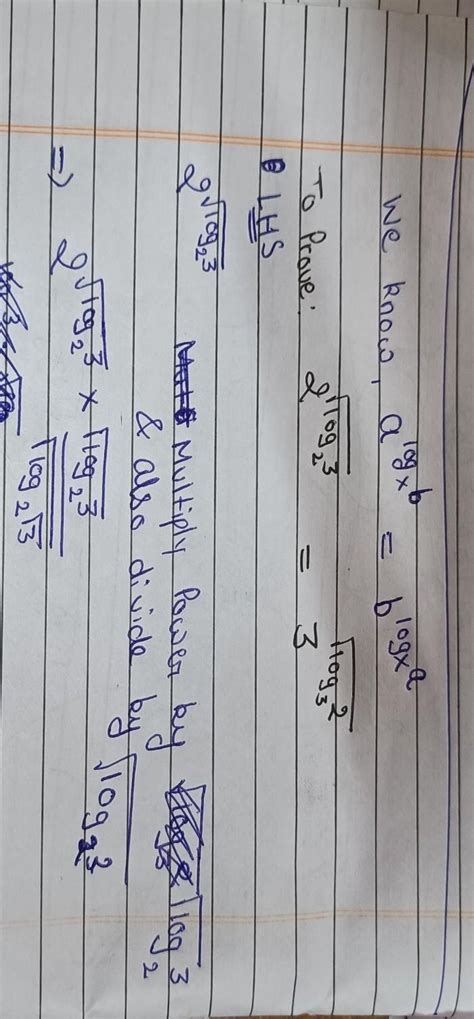 We know, a^{log_x b} = b^{log_x a}
To Prove: 2^{√(log_2 3)} = 3^{√(log_3 2)}
LHS
2^{√(log_2 3)} Multiply Power by √(log_2 3)
& also divide by √(log_2 3)
⇒ 2^{√(log_2 3) × √(log_2 3) / √(log_2 √3)}